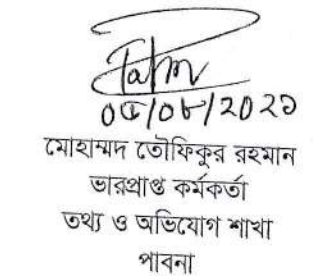 ০৫/০৮/২০২১
মোহাম্মদ তৌফিকুর রহমান
ভারপ্রাপ্ত কর্মকর্তা
তথ্য ও অভিযোগ শাখা
পাবনা